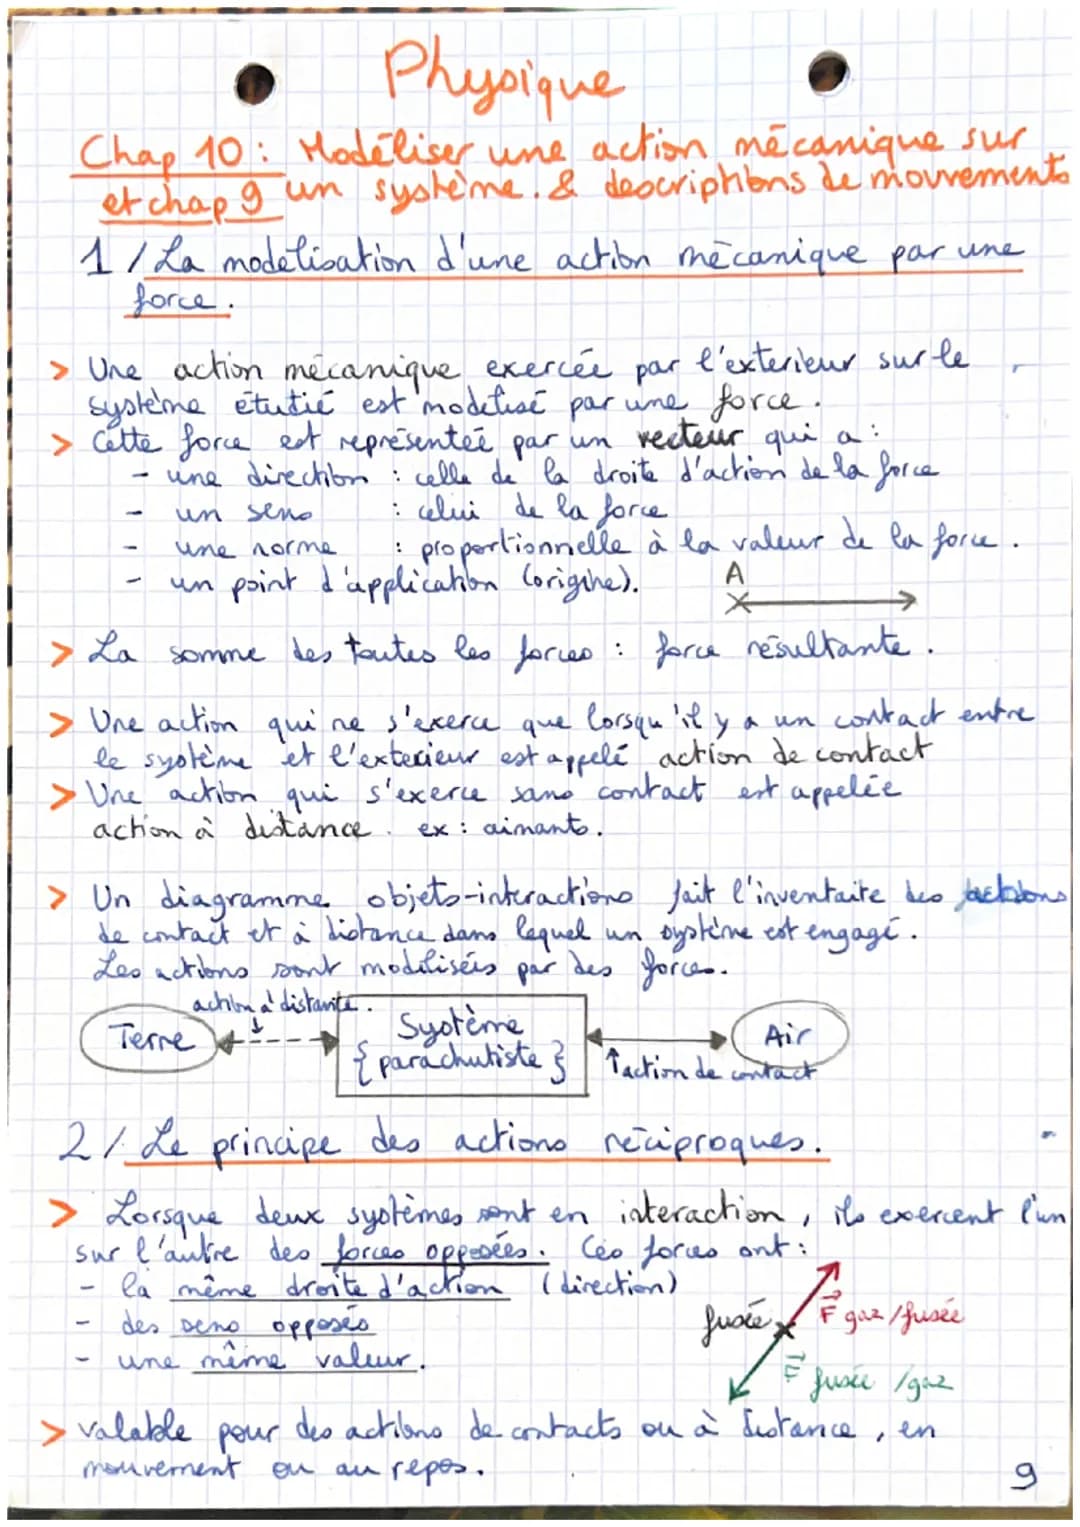 Physique
Chap 10 : Modéliser une action mécanique sur
et chap 9 un système. & descriptions de mouvements
1 / La modélisation d'une action mécanique par une
force.
> Une action mécanique exercée par l'exterieur sur le
système étudié est modélisé par une force.
> Cette force est représentée par un vecteur qui a :
- une direction : celle de la droite d'action de la force
- un sens : celui de la force
- une norme : proportionnelle à la valeur de la force.
- un point d'application (origine).
A
> La somme des toutes les forces : force résultante.
> Une action qui ne s'exerce que lorsqu'il y a un contact entre
le système et l'exterieur est appelé action de contact
> Une action qui s'exerce sans contact est appelée
action à distance. ex : aimants.
> Un diagramme objets-interactions fait l'inventaire des actions
de contact et à distance dans lequel un système est engagé.
Les actions sont modélisées par des forces.
action à distante.
Terre
Système
{ parachutiste }
Air
↑action de contact
2 / Le principe des actions réciproques.
> Lorsque deux systèmes sont en interaction, ils exercent l'un
sur l'autre des forces opposées. Ces forces ont :
- la même droite d'action (direction)
- des sens opposés
- une même valeur.
fusée
F gaz /fusée
F fusée /gaz
> valable pour des actions de contacts ou à distance, en
mouvement ou au repos.
9